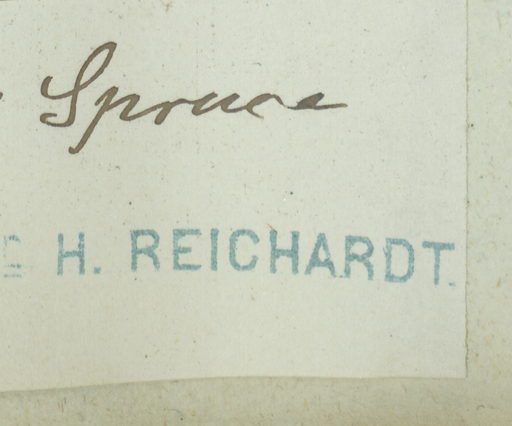 Spruce
H. REICHARDT.